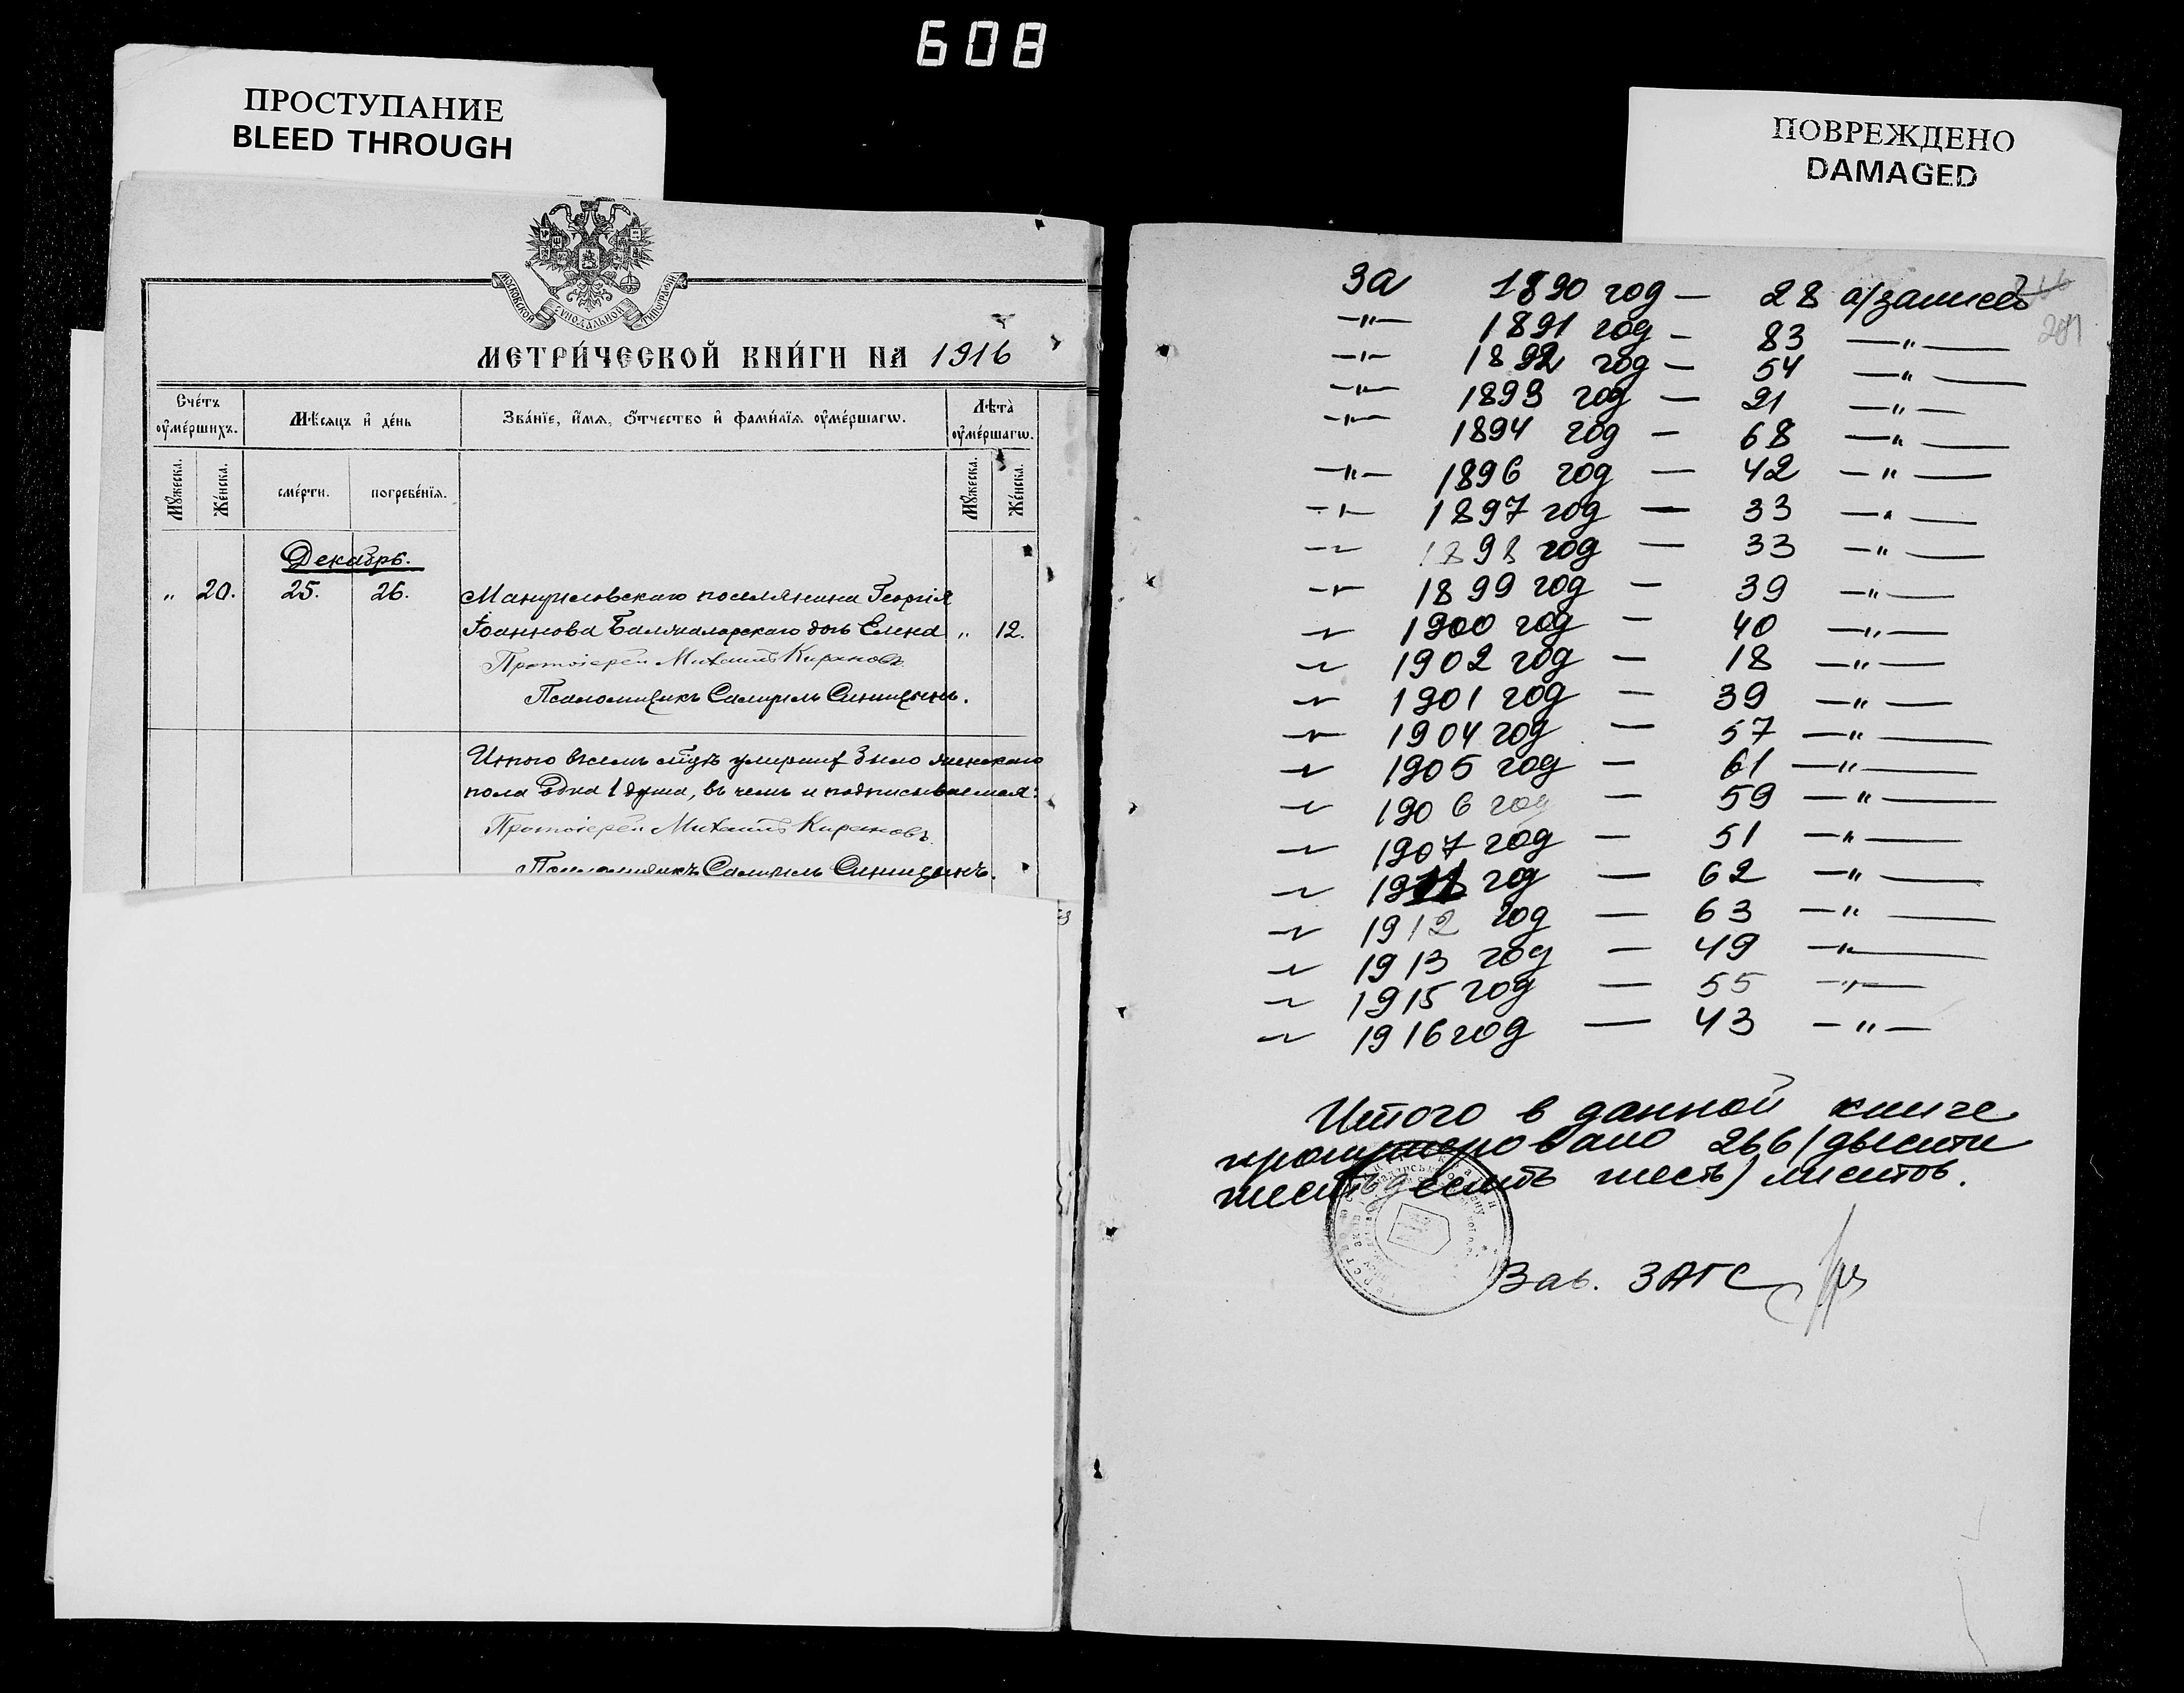 608
ПРОСТУПАНИЕ
BLEED THROUGH
ПОВРЕЖДЕНО
DAMAGED
МОСКОВСКОЙ СУНОДАЛЬНОЙ ТИПОГРАФІИ
МЕТРИ́ЧЕСКОЙ КНИ́ГИ НА 1916
Сче́тъ оуме́ршихъ.
Мѣ́сяцъ и де́нь
Зва́нїе, и́мѧ, ѻ́тчество и фами́лїѧ оуме́ршагѡ.
Лѣта̀ оуме́ршагѡ.
Мꙋ́жеска.
Же́нска.
сме́рти.
погребе́нїѧ.
Мꙋ́жеска.
Же́нска.
Декабрь.
„ 20. 25. 26. поселянина Георгія
Іоаннова дочь Елена „ 12.
Протоіерей Михаилъ Кирановъ
Псаломщикъ Самуилъ Синицынъ.
Итого въ семъ умершихъ было женскаго
пола одна 1 душа, въ чемъ и подписываемся:
Протоіерей Михаилъ Кирановъ
Псаломщикъ Самуилъ Синицынъ.
За 1890 год — 28 а/записей
—"— 1891 год — 83 —"—
—"— 1892 год — 54 —"—
—"— 1893 год — 21 —"—
—"— 1894 год — 68 —"—
—"— 1896 год — 42 —"—
—"— 1897 год — 33 —"—
—"— 1898 год — 33 —"—
—"— 1899 год — 39 —"—
—"— 1900 год — 40 —"—
—"— 1902 год — 18 —"—
—"— 1901 год — 39 —"—
—"— 1904 год — 57 —"—
—"— 1905 год — 61 —"—
—"— 1906 год — 59 —"—
—"— 1907 год — 51 —"—
—"— 1911 год — 62 —"—
—"— 1912 год — 63 —"—
—"— 1913 год — 49 —"—
—"— 1915 год — 55 —"—
—"— 1916 год — 43 —"—
Итого в данной книге
пронумеровано 266 (двести
шестьдесят шесть) листов.
Зав. ЗАГС